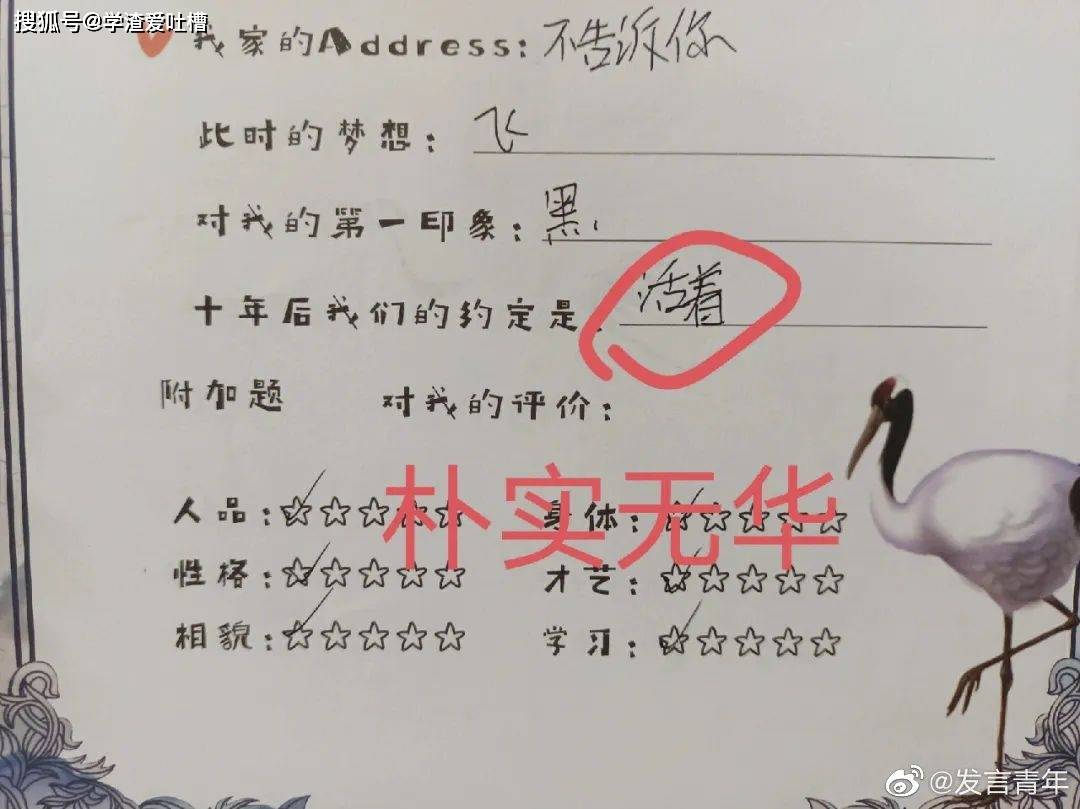 搜狐号@学渣爱吐槽
我家的Address:不告诉你
此时的梦想:飞
对我的第一印象:黑
十年后我们的约定是:活着
附加题 对我的评价:
朴实无华
人品:☆☆☆☆☆ 身体:☆☆☆☆☆
性格:☆☆☆☆☆ 才艺:☆☆☆☆☆
相貌:☆☆☆☆☆ 学习:☆☆☆☆☆
@发言青年